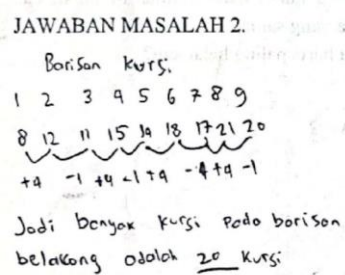 JAWABAN MASALAH 2.
Barisan kursi
1 2 3 4 5 6 7 8 9
8 12 11 15 14 18 17 21 20
+4 -1 +4 -1 +4 -4 +4 -1
Jadi banyak kursi pada barisan
belakang adalah 20 kursi